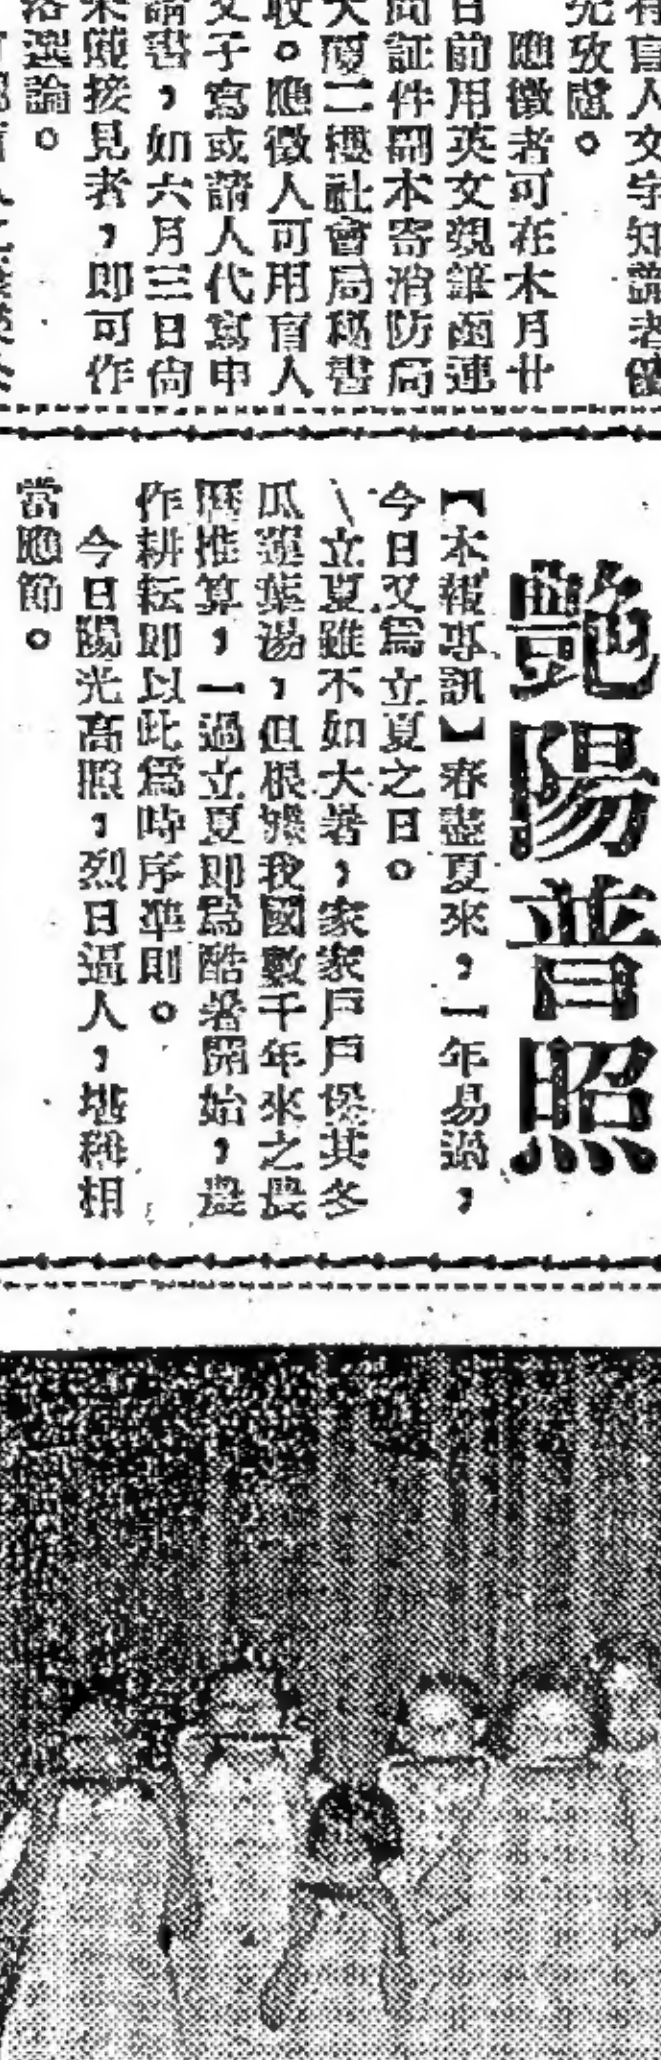 有盲人文字知識者
先攷慮。
應徵者可在本月廿
日前用英文親筆函連
同証件副本寄消防局
大廈二樓社會局秘書
收。應徵人可用盲人
文子寫或請人代寫申
請書，如六月三日尙
未獲接見者，即可作
落選論。
艷陽普照
【本報專訊】春盡夏來，一年易過，
今日又爲立夏之日。
立夏雖不如大暑，家家戶戶煲其冬
瓜蓮葉湯，但根據我國數千年來之農
曆推算，一過立夏即爲酷暑開始，農
作耕耘即以此爲時序準則。
今日陽光高照，烈日逼人，堪稱相
當應節。